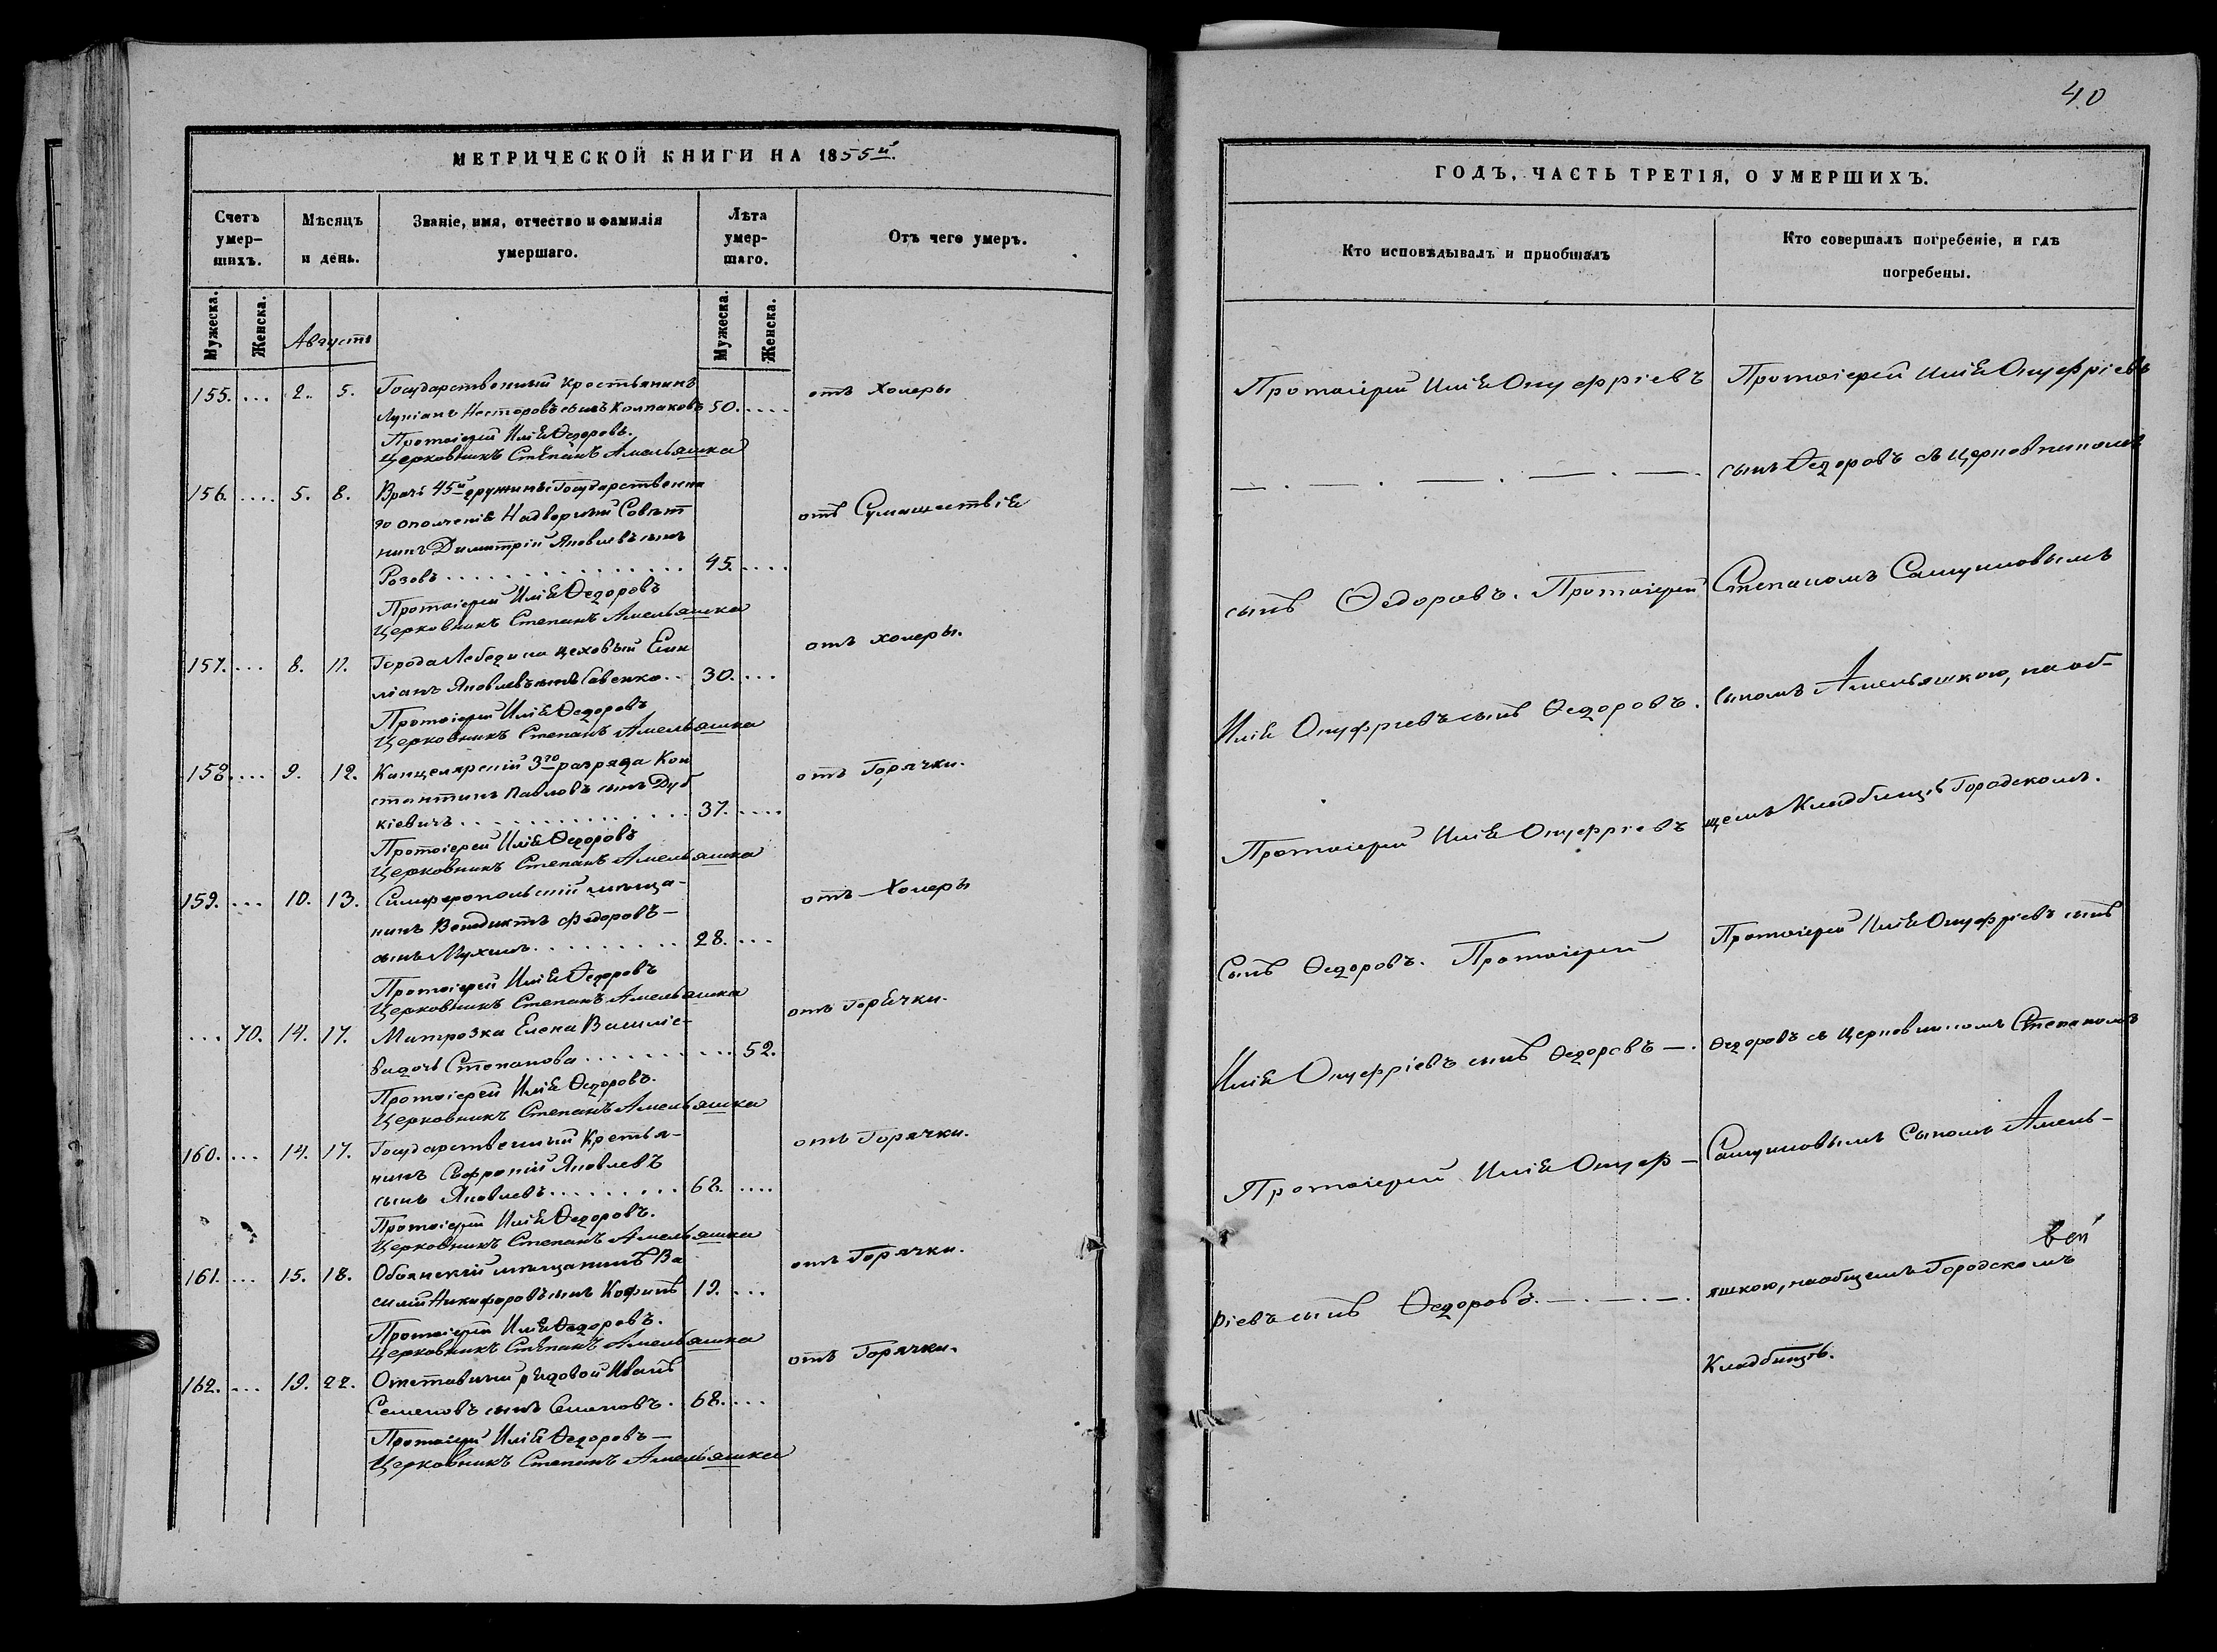 МЕТРИЧЕСКОЙ КНИГИ НА 1855й.
Счетъ умер-шихъ.
Мѣсяцъ и день.
Званіе, имя, отчество и фамилія умершаго.
Лѣта умер-шаго.
Отъ чего умеръ.
Мужеска. Женска. Августъ Мужеска. Женска.
155. ... 2. 5. Государственный крестьянинъ отъ Холеры
Лупіанъ Несторовъ сынъ Колпаковъ 50. ....
Протоіерей Илія Ѳедоровъ.
Церковникъ Степанъ Амельяшка
156. .... 5. 8. Врачъ 45й дружины Государственна
го ополченія Надворный Совѣт отъ Сумашествія
никъ Димитрій Яковлевъ сынъ
Розовъ ............... 45. ....
Протоіерей Илія Ѳедоровъ
Церковникъ Степанъ Амельяшка
157. ... 8. 11. Города Лебедина цеховый Еми отъ холеры.
ліанъ Яковлевъ сынъ Савенко .. 30. ...
Протоіерей Илія Ѳедоровъ
Церковникъ Степанъ Амельяшка
158. ... 9. 12. Канцелярскій 3го разряда Кон отъ Горячки.
стантинъ Павловъ сынъ Дуб
кіевичъ .............. 37. ....
Протоіерей Илія Ѳедоровъ
Церковникъ Степанъ Амельяшка
159. ... 10. 13. Симферопольскій мѣща- отъ Холеры
нинъ Венедиктъ Федоровъ —
сынъ Мухинъ ......... 28. ...
Протоіерей Илія Ѳедоровъ
Церковникъ Степанъ Амельяшка
... 70. 14. 17. Матрозка Елена Василіе- отъ Горячки.
ва дочь Степанова .......... 52.
Протоіерей Илія Ѳедоровъ.
Церковникъ Степанъ Амельяшка
160. ... 14. 17. Государственный Кретья- отъ Горячки.
нинъ Софроній Яковлевъ
сынъ Яковлевъ ......... 62. ....
Протоіерей Илія Ѳедоровъ.
Церковникъ Степанъ Амельяшка
161. ... 15. 18. Обоянскій мѣщанинъ Ва отъ Горячки.
силій Никифоровъ сынъ Кофинъ 19. ...
Протоіерей Илія Ѳедоровъ.
Церковникъ Степанъ Амельяшка
162. ... 19. 22. Отставный рядовой Иванъ отъ Горячки.
Семеновъ сынъ Семеновъ. 68. ....
Протоіерей Илія Ѳедоровъ —
Церковникъ Степанъ Амельяшка
40
ГОДЪ, ЧАСТЬ ТРЕТІЯ, О УМЕРШИХЪ.
Кто исповѣдывалъ и пріобщалъ
Кто совершалъ погребеніе, и гдѣ погребены.
Протоіерей Илія Онуфріевъ
— . — . — . — . — .
сынъ Ѳедоровъ. Протоіерей
Илія Онуфріевъ сынъ Ѳедоровъ.
Протоіерей Илія Онуфріевъ
Сынъ Ѳедоровъ. Протоіерей
Илія Онуфріевъ сынъ Ѳедоровъ — .
Протоіерей Илія Онуф-
ріевъ сынъ Ѳедоровъ. — . — . — .
Протоіерей Илія Онуфріевъ
сынъ Ѳедоровъ съ церковникомъ
Степаномъ Самуиловымъ
сыномъ Амельяшкою, на об-
щемъ Кладбищѣ Городскомъ.
Протоіерей Илія Онуфріевъ сынъ
Ѳедоровъ съ церковникомъ Степаномъ
Самуиловымъ Сыномъ Амель-
яшкою, на общемъ Городскомъ
Кладбищѣ.